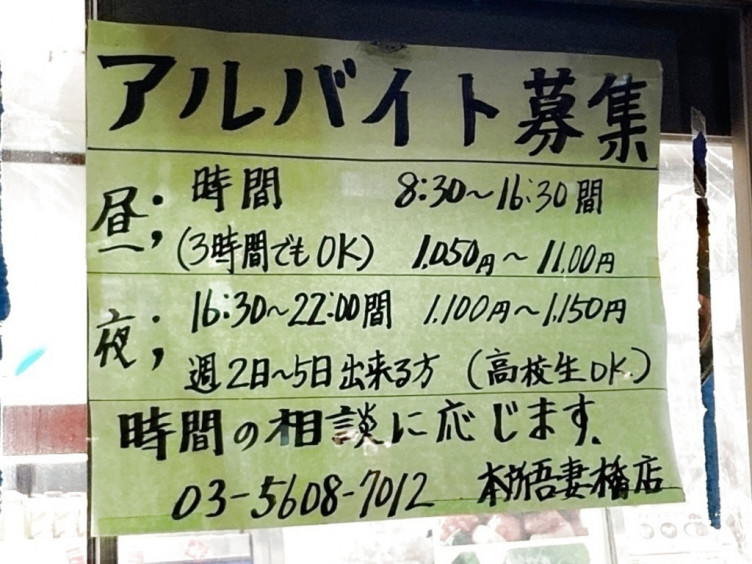 アルバイト募集
昼; 時間 8:30～16:30間
(3時間でもOK) 1.050円～11.00円
夜; 16:30～22:00間 1.100円～1.150円
週2日～5日出来る方 (高校生OK.)
時間の相談に応じます.
03-5608-7012 本所吾妻橋店